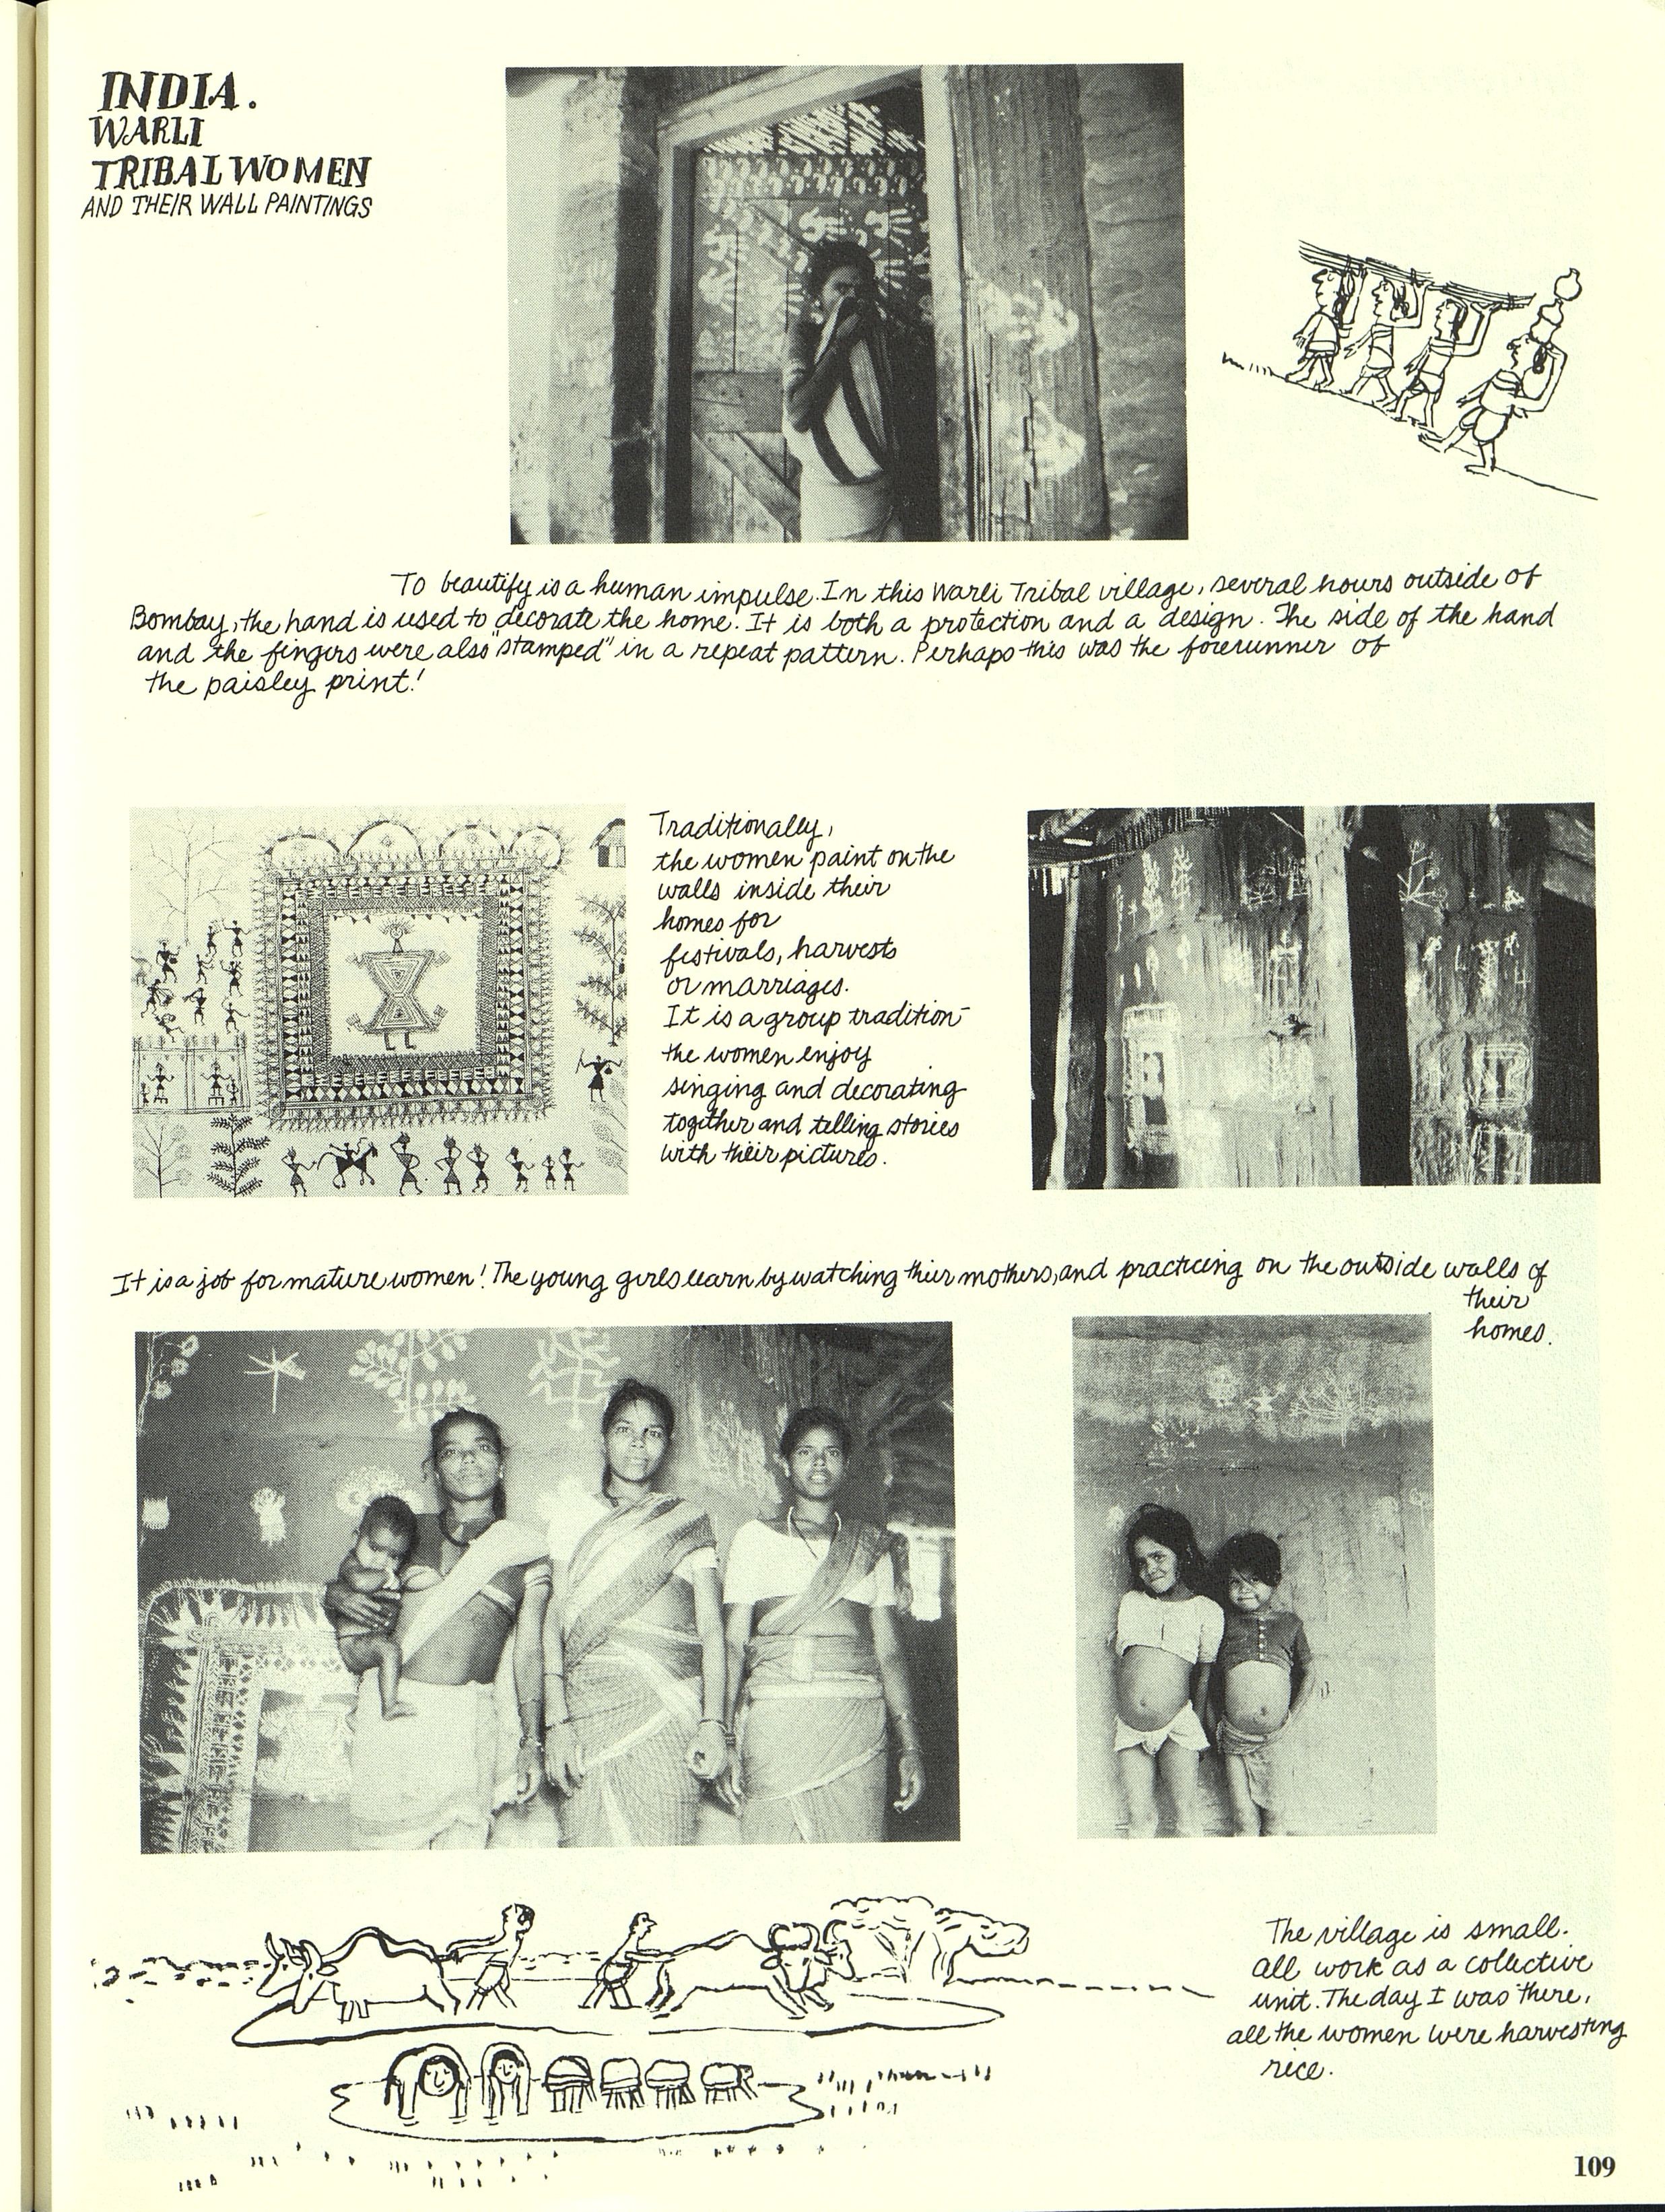 INDIA.
WARLI
TRIBAL WOMEN
AND THEIR WALL PAINTINGS
To beautify is a human impulse. In this Warli Tribal village, several hours outside of
Bombay, the hand is used to decorate the home. It is both a protection and a design. The side of the hand
and the fingers were also "stamped" in a repeat pattern. Perhaps this was the forerunner of
the paisley print!
Traditionally,
the women paint on the
walls inside their
homes for
festivals, harvests
or marriages.
It is a group tradition-
the women enjoy
singing and decorating
together and telling stories
with their pictures.
It is a job for mature women! The young girls learn by watching their mothers, and practicing on the outside walls of
their
homes.
The village is small.
All work as a collective
unit. The day I was there,
all the women were harvesting
rice.
109